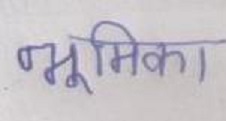 भूमिका